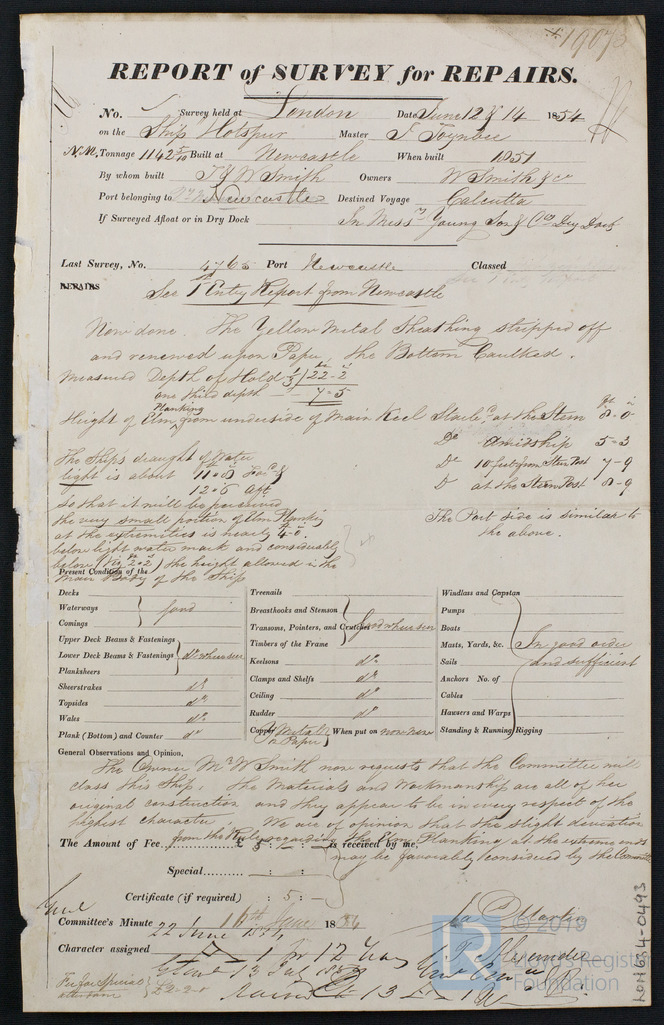 19073
REPORT of SURVEY for REPAIRS.
No. Survey held at London Date June 12 & 14 1854
on the Ship Hotspur Master J Toynbee
N.M. Tonnage 1142 5/10 Built at Newcastle When built 1851
By whom built T & W Smith Owners W Smith & Co
Port belonging to Newcastle Destined Voyage Calcutta
If Surveyed Afloat or in Dry Dock In Messrs Young Son & Cos Dry Dock
Last Survey, No. Port Newcastle Classed
REPAIRS See 1st Entry Report from Newcastle
Now done. The Yellow Metal Sheathing stripped off
and renewed upon Paper, the Bottom Caulked.
Measured Depth of Hold 1/3 / 22-2
one third depth 7-5
Height of Elm Planking from underside of Main Keel at the Stem 8-0
Do amidship 5-3
Do 10 feet from Stern Post 7-9
D at the Stern Post 8-9
The Ships draught of Water
light is about 11-8
12-6 Aft
So that it will be perceived
the very small portion of Elm Planking
at the extremities is nearly 4-0
below light water mark and considerably
below the height allowed in the
Main Body of the Ship
The Port side is similar to
the above.
Present Condition of the
Decks
Waterways
Comings
good
Upper Deck Beams & Fastenings
Lower Deck Beams & Fastenings
Planksheers
do where seen
Sheerstrakes do
Topsides do
Wales do
Plank (Bottom) and Counter do
Treenails
Breasthooks and Stemson
Transoms, Pointers, and Crutches
Timbers of the Frame
good where seen
Keelsons do
Clamps and Shelfs do
Ceiling do
Rudder do
Copper Y Metal on Paper When put on now new
Windlass and Capstan
Pumps
Boats
Masts, Yards, &c.
Sails
Anchors No. of
Cables
Hawsers and Warps
Standing & Running Rigging
In good order
and sufficient
General Observations and Opinion,
The Owner Mr W Smith now requests that the Committee will
class this Ship, the Materials and Workmanship are all of her
original construction and they appear to be in every respect of the
highest character. We are of opinion that the slight deviation
from the Rules regarding the Elm Planking at the extreme ends
may be favorably considered by the Committee
The Amount of Fee £ 5 : : is received by me,
Special : :
Certificate (if required) : 5 :
Committee's Minute 16th June 1854
22 June 1854
Character assigned A 1 for 12 Years
Fee for Special
attendance £2-2-0
Martin
© 2019
Lloyd's Register
Foundation
LON634-0493